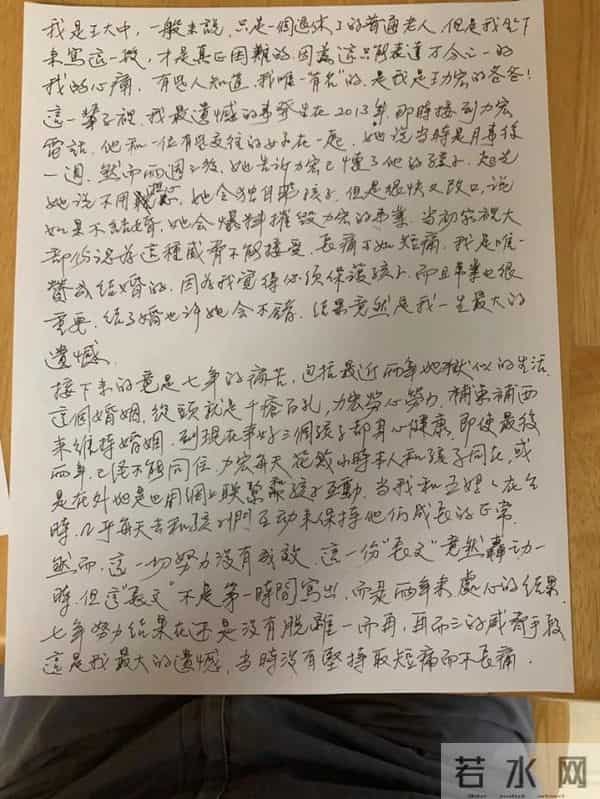 我是王大中，一般來說，只是一個退休了的普通老人，但是我坐下
來寫這一段，才是真正困難的，因為這只能表達万分之一的
我的心痛，有些人知道，我唯一有名"的，是我是王力宏的爸爸！
這一輩子裡，我最遺憾的事發生在2013年，那時接到力宏
電話，他和一位有些交往的女子在一起，她說當時是月事後
一週，然而两週之後，她告訴力宏已懷了他的孩子，起先
她說不用擔心，她会獨自养孩子，但是很快又改口，說
如果不結婚，她会爆料摧毀力宏的事業，當初家裡大
部份認為這種威脅不能接受，長痛不如短痛，我是唯一
贊成結婚的，因為我覺得必須保護孩子，而且事業也很
重要，结了婚也许她会不错，结果竟然是我一生最大的
遺憾。
接下来的竟是七年的痛苦，包括最近两年地獄似的生活
這個婚姻，從頭就是千瘡百孔，力宏勞心勞力，補東補西
来維持婚姻，到現在幸好三個孩子都身心健康，即使最後
两年，已经不能同住，力宏每天花幾小時本人和孩子同在，或
是在外地也用網上联繫和孩子互動，當我和王妈々在台
時，几乎每天去和孩子們互动来保持他们成長的正常。
然而，這一切努力没有成效，這一份"長文"竟然轟动一
時，但這"長文"不是第一時間寫出，而是两年来處心的结果，
七年努力结果在还是没有脫離一而再，再而三的威脅手段
這是我最大的遺憾，當時没有堅持取短痛而不長痛．
若水网